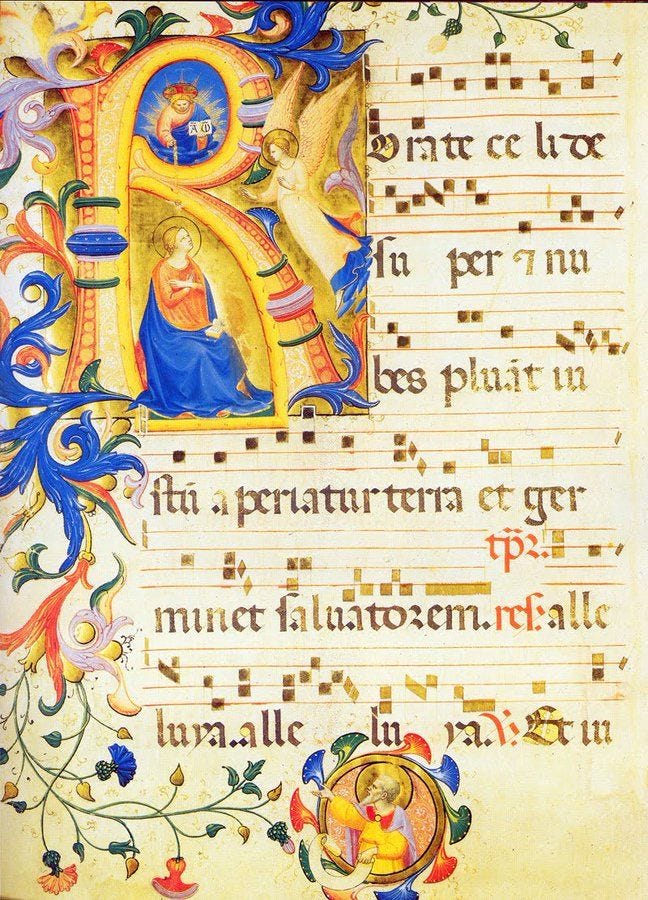 A Ω
RORate ce li de
su per ⁊ nu
bes pluāt iu
stū a periatur terra et ger
tp̄r.
minet saluatorem. res. alle
luya..alle lu ya. ℣. Et iu